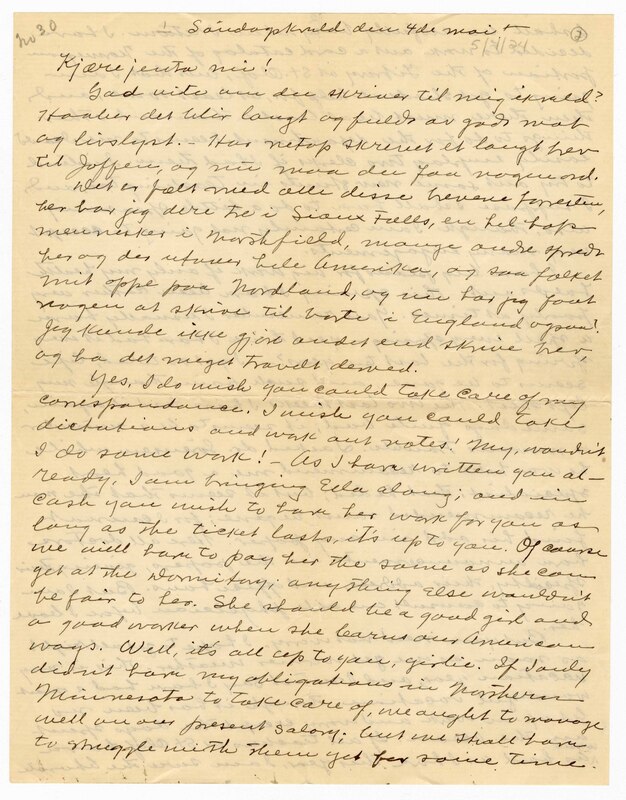 No 30
Søndagskveld den 4de mai!
5/4/24
Kjære jenta mi!
Gad vite om du skriver til mig ikveld?
Haaber det blir langt og fuldt av godt mot
og livslyst. – Har netop skrevet et langt brev
til Joffen, og nu maa du faa nogen ord.
Det er fælt med alle disse brevene forresten,
her har jeg dere tre i Sioux Falls, en hel hop
mennesker i Northfield, mange andre spredt
her og der utover hele Amerika, og saa folket
mit oppe paa Nordland, og nu har jeg faat
nogen at skrive til borte i England ogsaa!
Jeg kunde ikke gjøre andet end skrive brev,
og ha det meget travelt derved.
Yes, I do wish you could take care of my
correspondance. I wish you could take
dictations and work out notes! My, wouldn't
I do some work! – As I have written you al-
ready, I am bringing Ella along; and in
cash you wish to have her work for you as
long as the ticket lasts, it's up to you. Of course
we will have to pay her the same as she can
get at the Dormitory; anything else wouldn't
be fair to her. She should be a good girl and
a good worker when she learns our American
ways. Well, it's all up to you, girlie. If I only
didn't have my obligations in Northern
Minnesota to take care of, we aught to manage
well on our present salary; but we shall have
to struggle with them yet for some time.